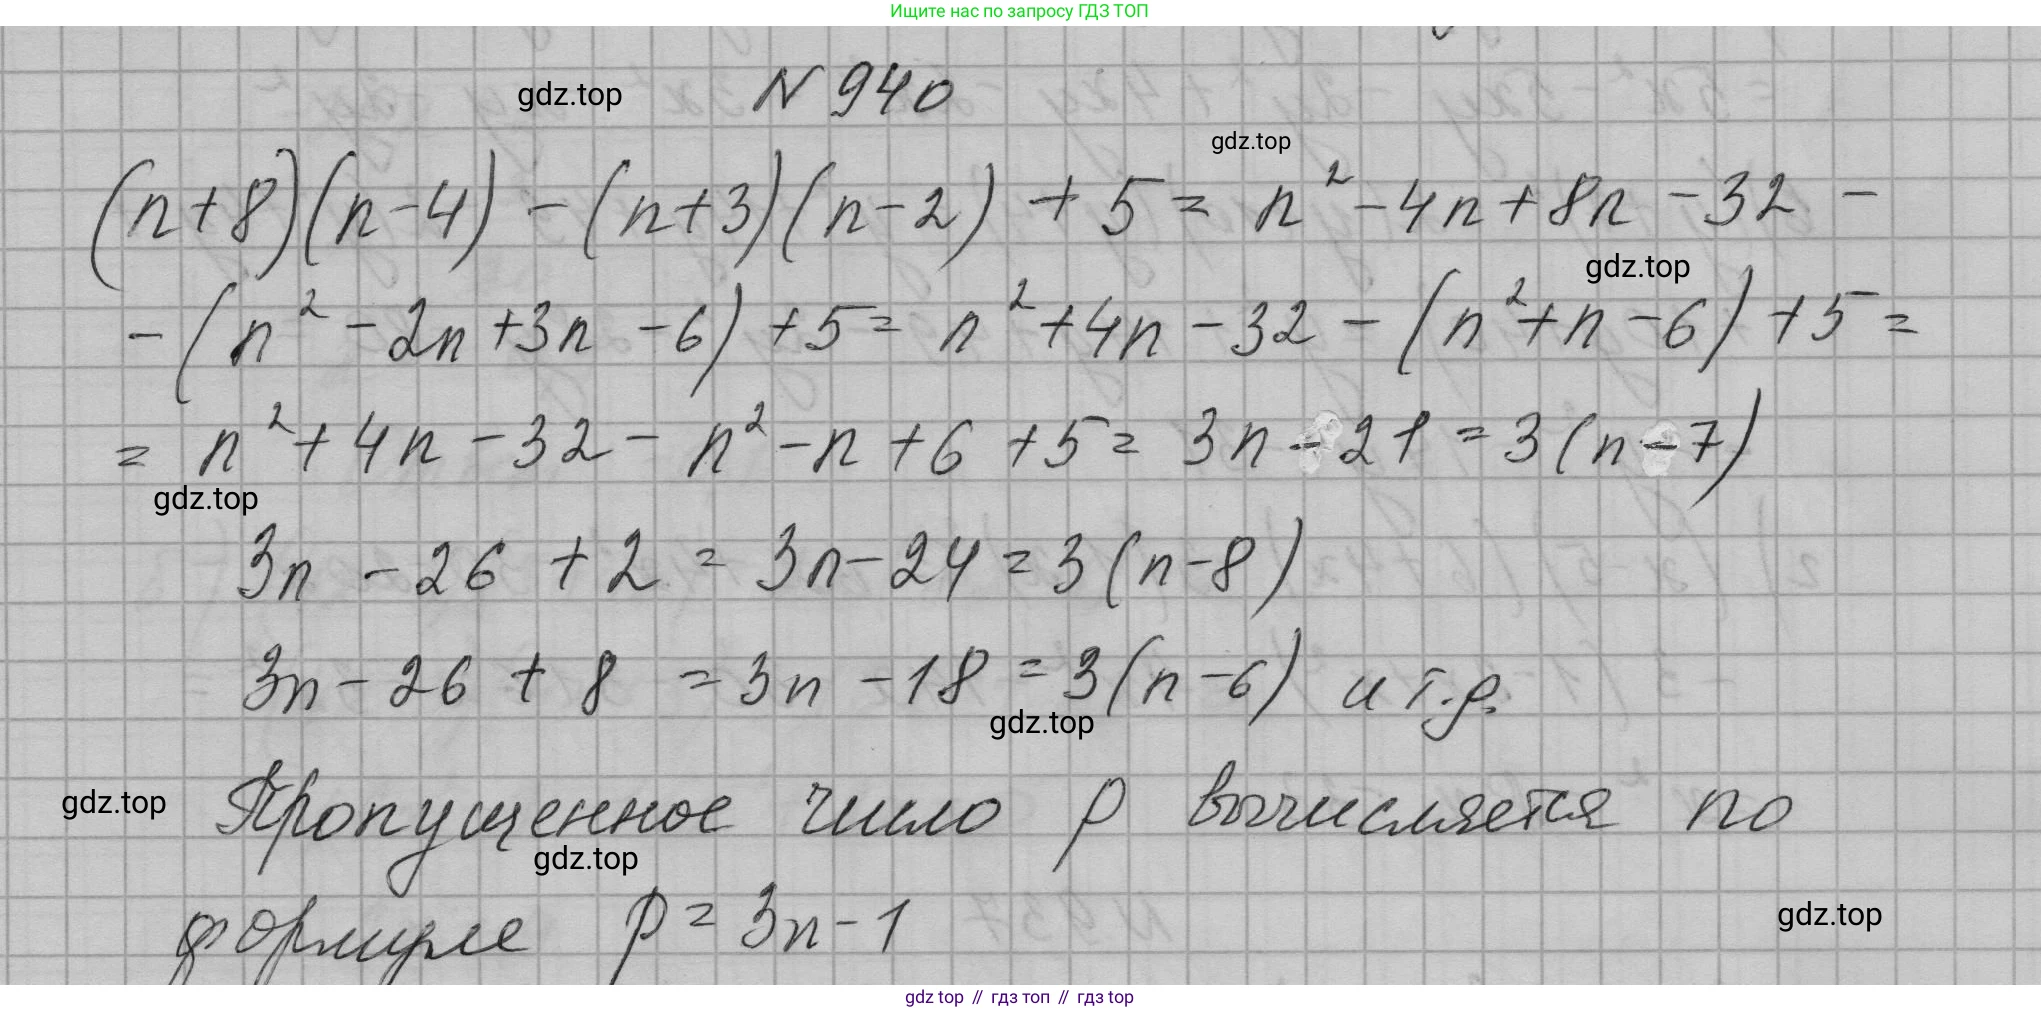 Ищите нас по запросу ГДЗ ТОП
gdz.top
N 940
gdz.top
(n+8)(n-4) - (n+3)(n-2) + 5 = n² - 4n + 8n - 32 -
gdz.top
- (n² - 2n + 3n - 6) + 5 = n² + 4n - 32 - (n² + n - 6) + 5 =
= n² + 4n - 32 - n² - n + 6 + 5 = 3n - 21 = 3(n - 7)
gdz.top
3n - 26 + 2 = 3n - 24 = 3(n - 8)
3n - 26 + 8 = 3n - 18 = 3(n - 6) и т.д.
gdz.top
gdz.top
Пропущенное число p вычисляется по
gdz.top
формуле p = 3n - 1
gdz.top
gdz top // гдз топ // гдз top